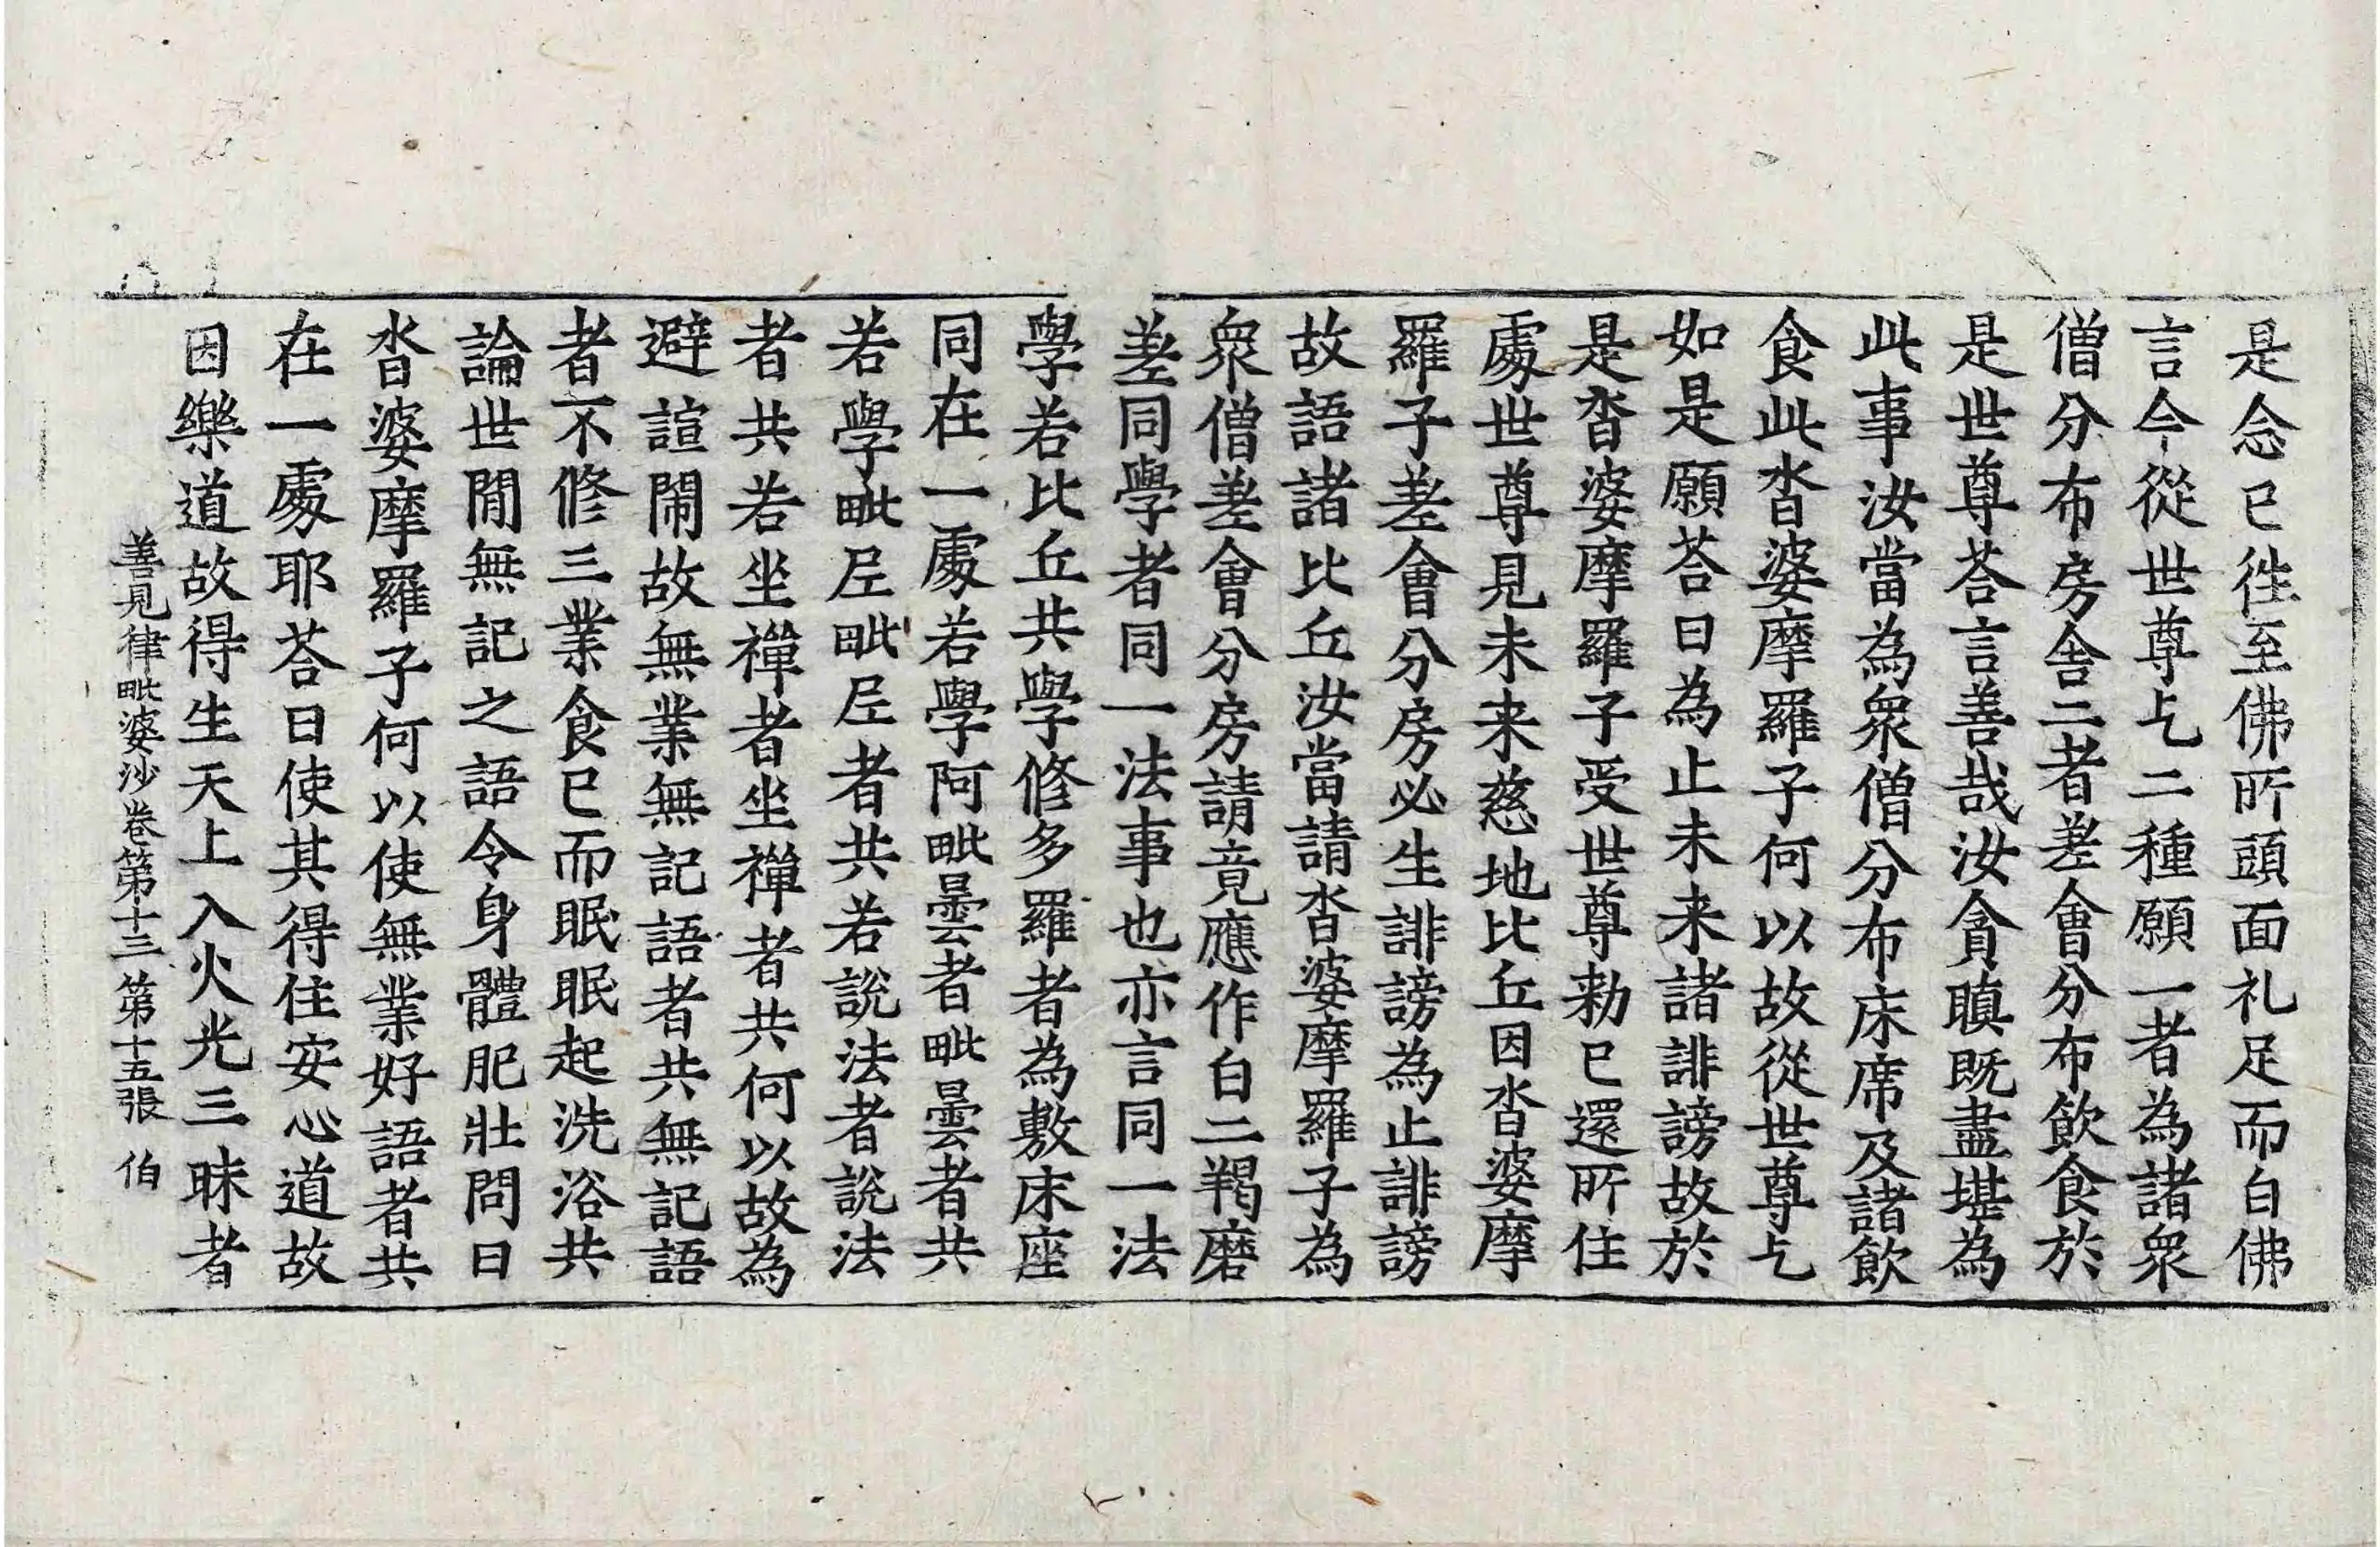 是念已徃至佛所頭面礼足而白佛
言今從世尊乞二種願一者為諸衆
僧分布房舎二者差會分布飲食於
是世尊荅言善哉汝貪瞋既盡堪為
此事汝當為衆僧分布床席及諸飲
食此沓婆摩羅子何以故從世尊乞
如是願荅曰為止未来諸誹謗故於
是沓婆摩羅子受世尊勑已還所住
處世尊見未来慈地比丘因沓婆摩
羅子差會分房必生誹謗為止誹謗
故語諸比丘汝當請沓婆摩羅子為
衆僧差會分房請竟應作白二羯磨
差同學者同一法事也亦言同一法
學若比丘共學修多羅者為敷床座
同在一處若學阿毗曇者毗曇者共
若學毗尼毗尼者共若說法者說法
者共若坐禪者坐禪者共何以故為
避諠閙故無業無記語者共無記語
者不修三業食已而眠眠起洗浴共
論世閒無記之語令身體肥壯問曰
沓婆摩羅子何以使無業好語者共
在一處耶荅曰使其得住安心道故
因樂道故得生天上入火光三昧者
善見律毗婆沙卷第十三 第十五張 伯